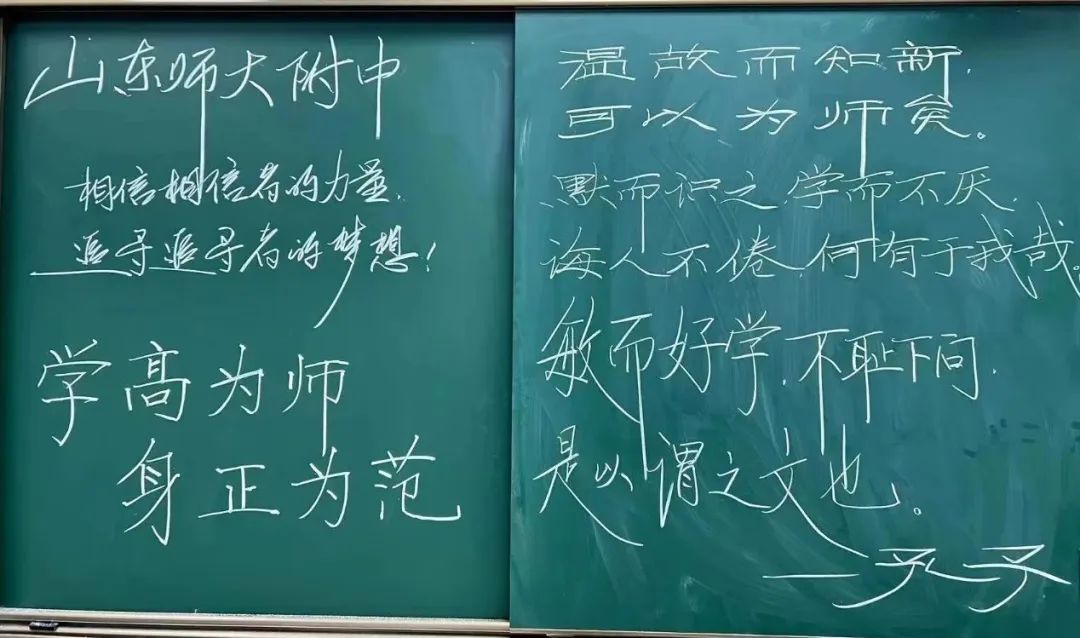 山东师大附中
相信相信者的力量,
追寻追寻者的梦想!
学高为师
身正为范
温故而知新,
可以为师矣。
默而识之,学而不厌,
诲人不倦,何有于我哉。
敏而好学,不耻下问,
是以谓之文也。
——孔子